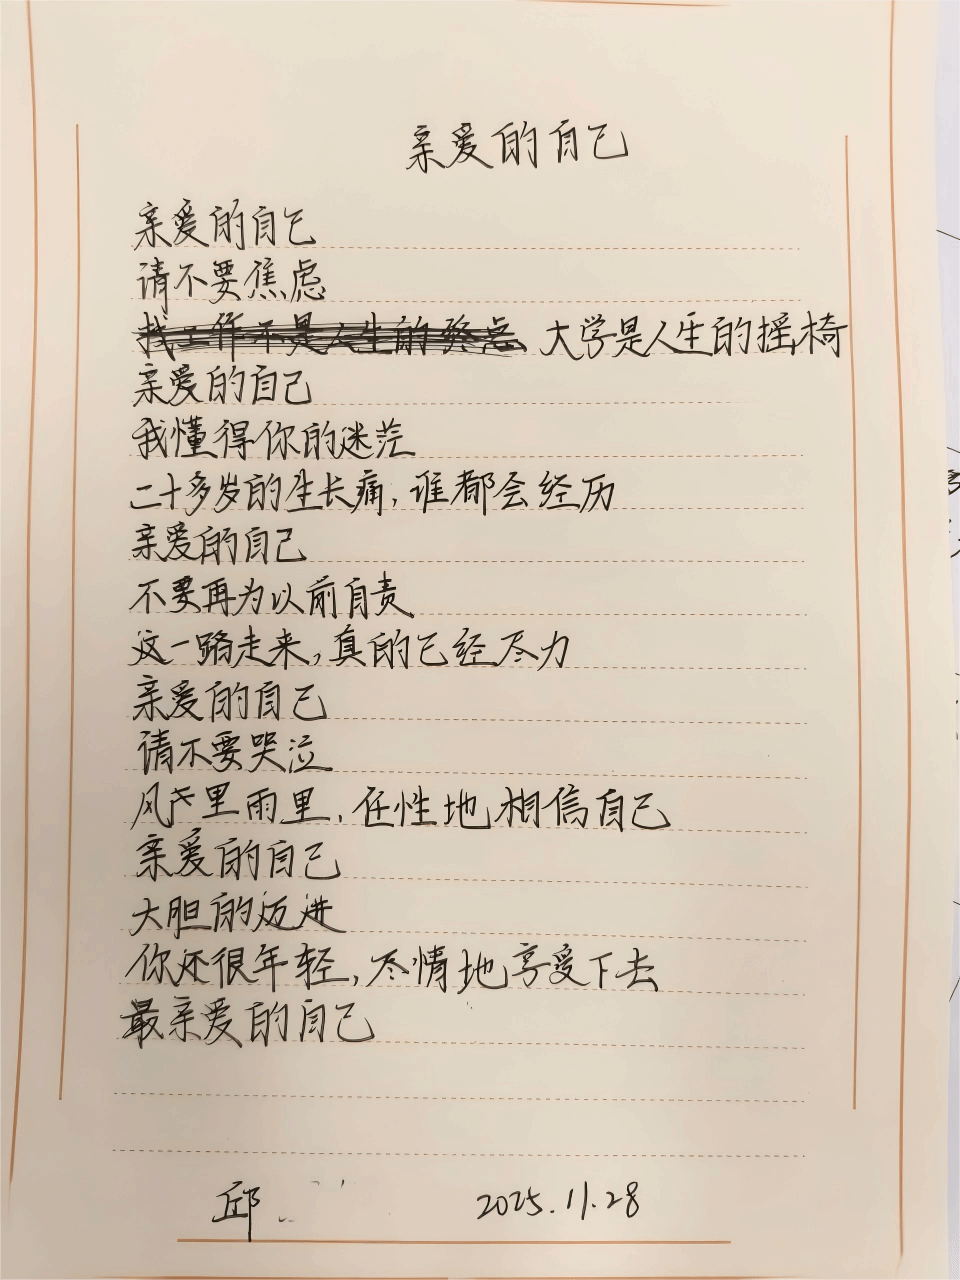 亲爱的自己
亲爱的自己
请不要焦虑
找工作不是人生的终点 大学是人生的摇椅
亲爱的自己
我懂得你的迷茫
二十多岁的生长痛,谁都会经历
亲爱的自己
不要再为以前自责
这一路走来,真的已经尽力
亲爱的自己
请不要哭泣
风里雨里,任性地相信自己
亲爱的自己
大胆的迈进
你还很年轻,尽情地享受下去
最亲爱的自己
邱 2025.11.28